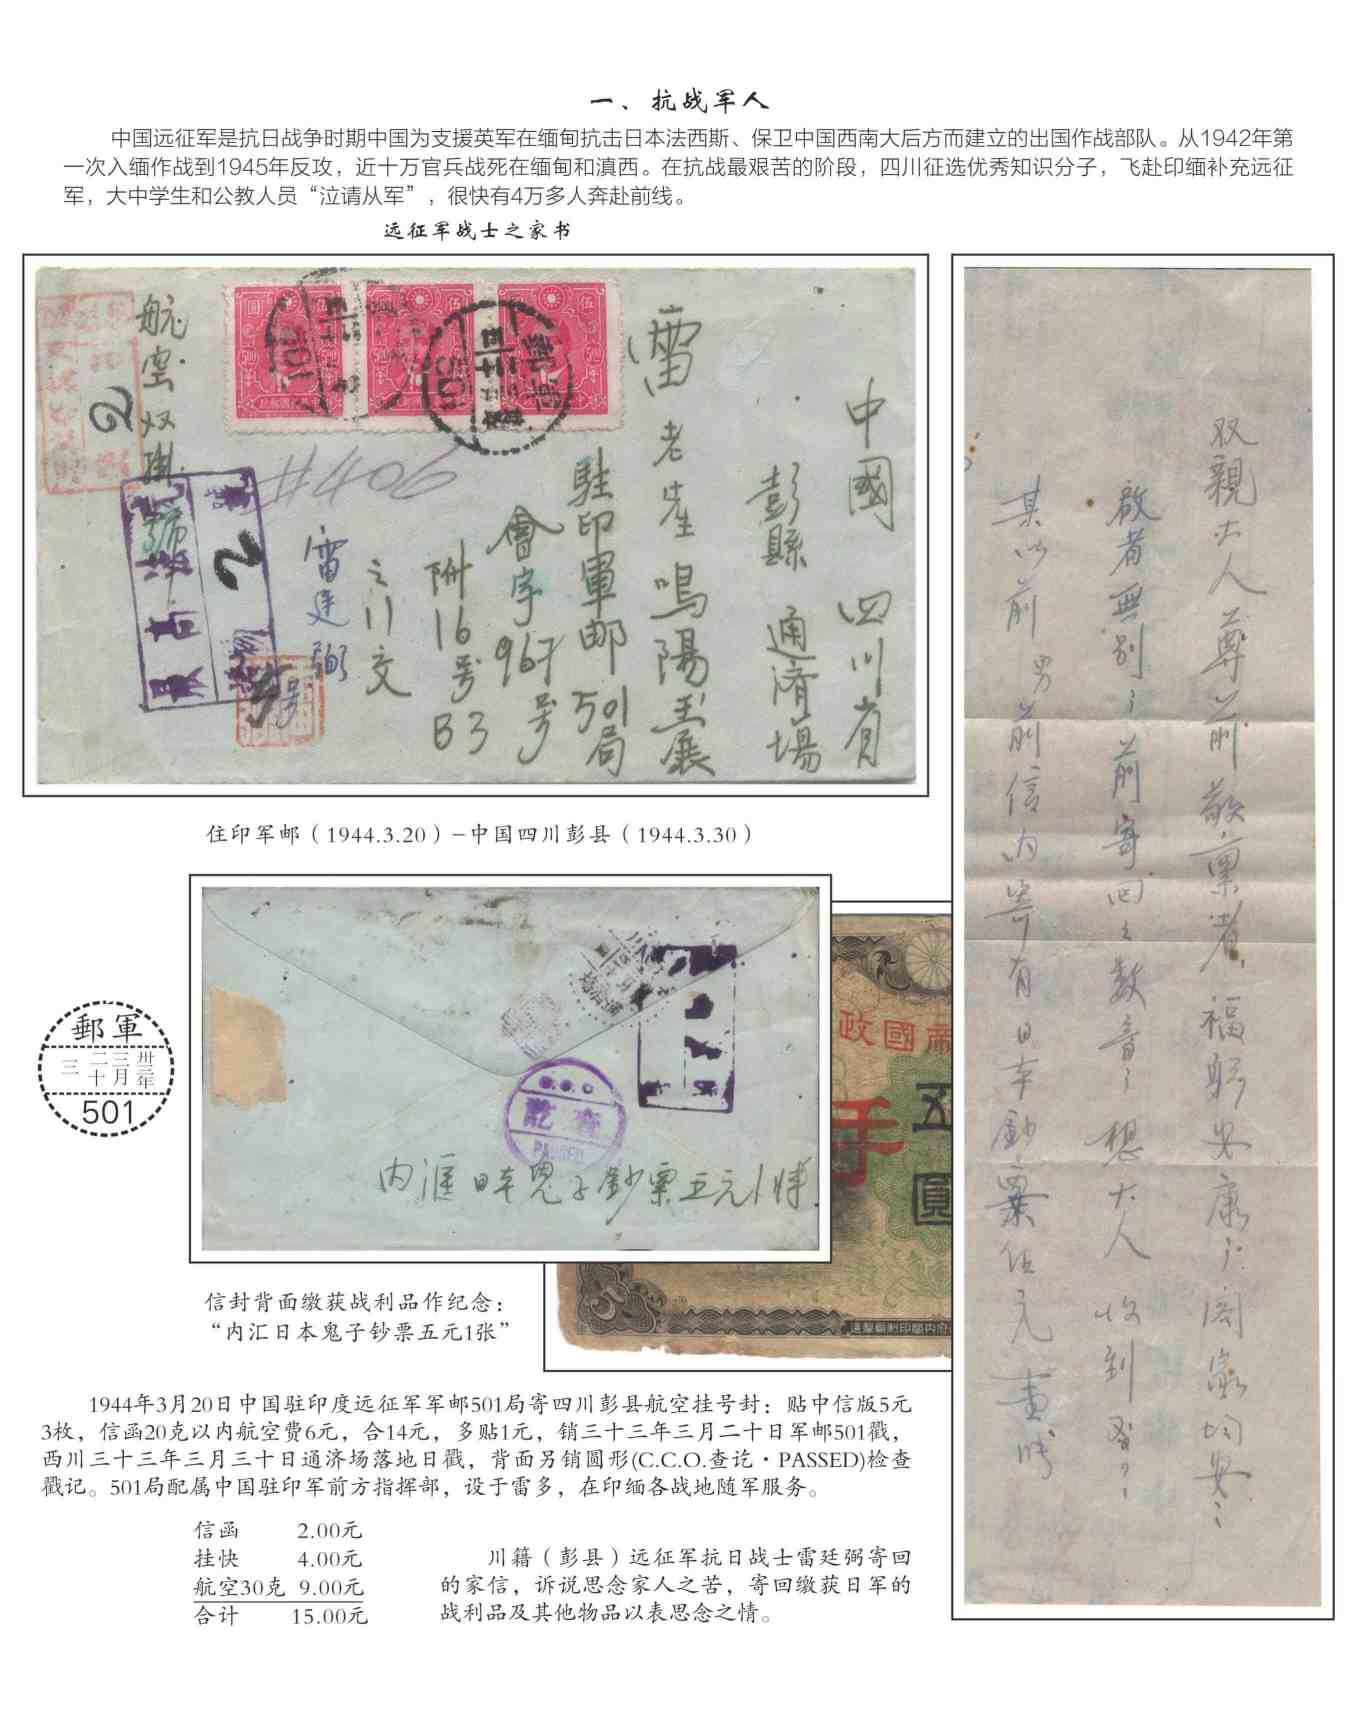 一、抗战军人
中国远征军是抗日战争时期中国为支援英军在缅甸抗击日本法西斯、保卫中国西南大后方而建立的出国作战部队。从1942年第
一次入缅作战到1945年反攻，近十万官兵战死在缅甸和滇西。在抗战最艰苦的阶段，四川征选优秀知识分子，飞赴印缅补充远征
军，大中学生和公教人员“泣请从军”，很快有4万多人奔赴前线。
远征军战士之家书
中國 四川省
彭縣 通濟場
雷老先生鳴陽玉展
駐印軍邮501局
會字967号
附16号B3
之11交
雷廷弼
航空双掛號
#406
2
2
501
501
伍
圓
500
住印军邮（1944.3.20）–中国四川彭县（1944.3.30）
双親大人尊前敬稟者，福躬安康；闔家均安；
啟者無别；前寄回之数音；想大人收到否？
某以前 男前信内寄有日本鈔票伍元
郵軍
卅三年
三月
二十
三
501
查訖
PASSED
内滙日本鬼子鈔票五元1張
國政
五
圓
信封背面缴获战利品作纪念：
“内汇日本鬼子钞票五元1张”
1944年3月20日中国驻印度远征军军邮501局寄四川彭县航空挂号封：贴中信版5元
3枚，信函20克以内航空费6元，合14元，多贴1元，销三十三年三月二十日军邮501戳，
西川三十三年三月三十日通济场落地日戳，背面另销圆形(C.C.O.查讫·PASSED)检查
戳记。501局配属中国驻印军前方指挥部，设于雷多，在印缅各战地随军服务。
信函 2.00元
挂快 4.00元
航空30克 9.00元
合计 15.00元
川籍（彭县）远征军抗日战士雷廷弼寄回
的家信，诉说思念家人之苦，寄回缴获日军的
战利品及其他物品以表思念之情。